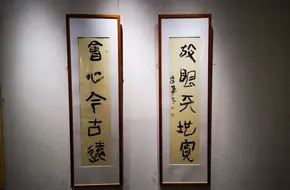 放眼天地寬
會心今古遠